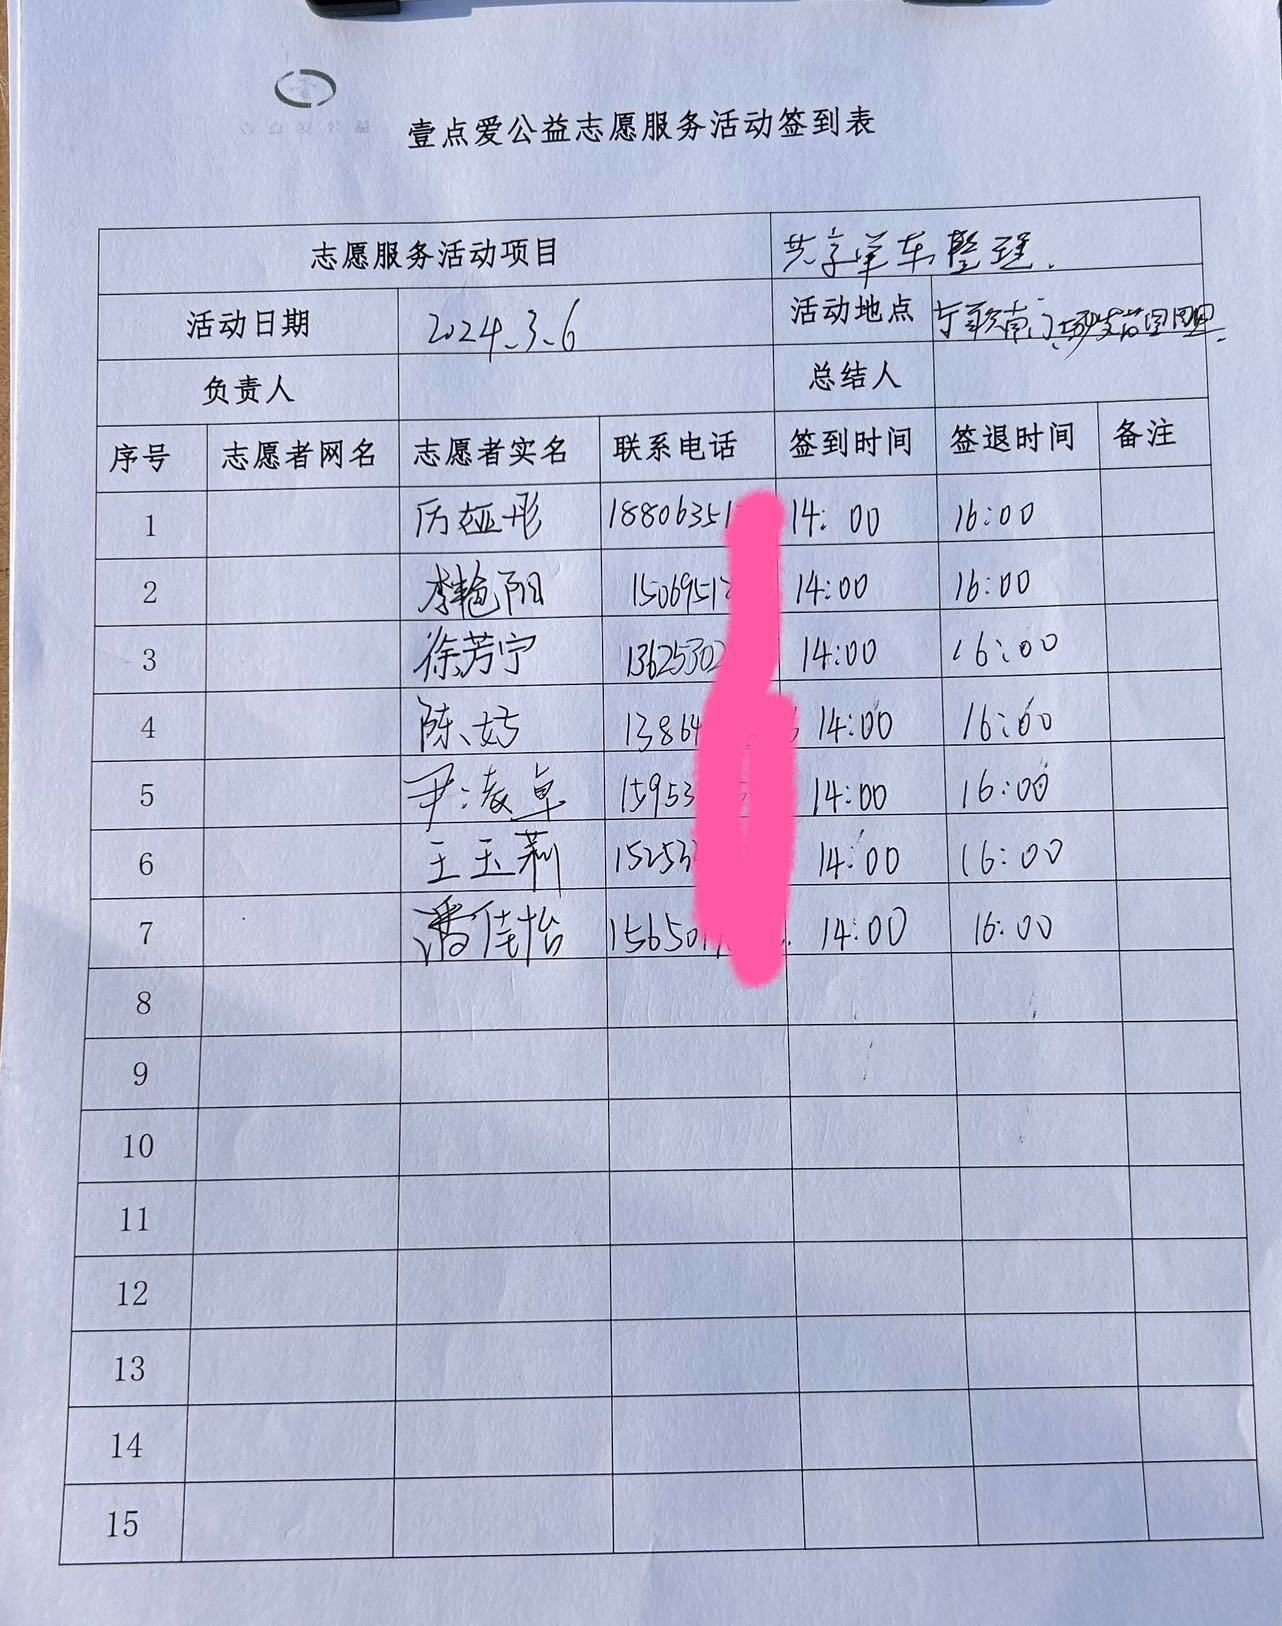 壹点爱公益志愿服务活动签到表
志愿服务活动项目 共享单车整理.
活动日期 2024.3.6 活动地点
负责人 总结人
序号 志愿者网名 志愿者实名 联系电话 签到时间 签退时间 备注
1 14:00 16:00
2 李艳阳 1506951 14:00 16:00
3 徐芳宁 13625302 14:00 16:00
4 陈 13864 14:00 16:00
5 尹凌卓 15953 14:00 16:00
6 王玉莉 15253 14:00 16:00
7 潘佳怡 156501 14:00 16:00
8
9
10
11
12
13
14
15